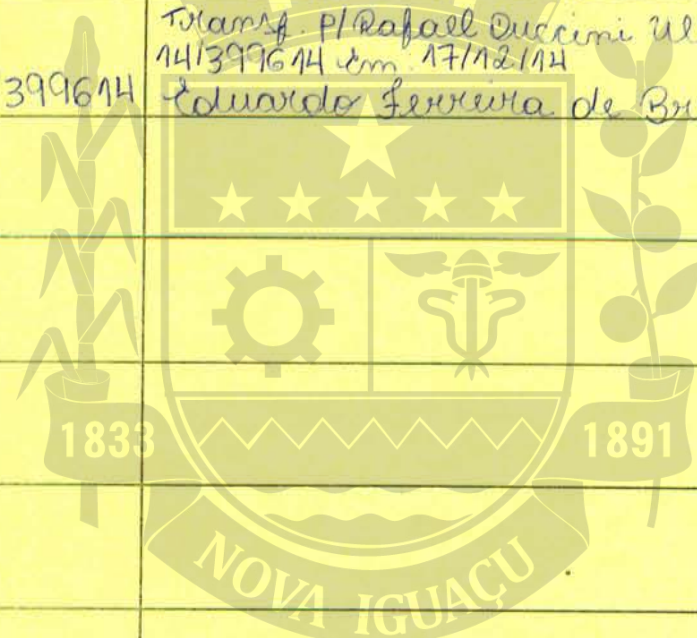 Transf. p/ Rafael Duccini
14/399614 em 17/12/14
399614 Eduardo Ferreira de Br
1833
1891
NOVA IGUAÇU